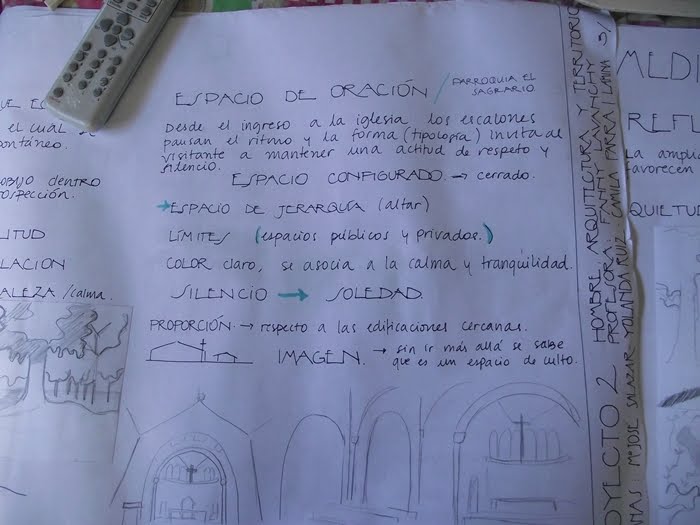 EL CUAL SE
PONTÁNEO.
DENTRO
OSPECCIÓN.
ITUD
LACION
ALEZA / calma.
ESPACIO DE ORACIÓN / PARROQUIA EL
SAGRARIO
Desde el ingreso a la iglesia los escalones
pausan el ritmo y la forma (tipología) invita de
visitante a mantener una actitud de respeto y
silencio.
ESPACIO CONFIGURADO. → cerrado.
→ ESPACIO DE JERARQUÍA (altar)
LÍMITES (espacios públicos y privados.)
COLOR claro, se asocia a la calma y tranquilidad.
SILENCIO → SOLEDAD.
PROPORCIÓN. → respecto a las edificaciones cercanas.
IMAGEN. → sin ir más allá se sabe
que es un espacio de culto.
OYECTO 2 HOMBRE, ARQUITECTURA Y TERRITORIO
PROFESORA: FANNY LAVANCHY 3/
NAS: Mª JOSÉ SALAZAR YOLANDA RUIZ CAMILA PARRA | LAMINA
MEDI
REFL
La ampli
favorecen
QUIETU